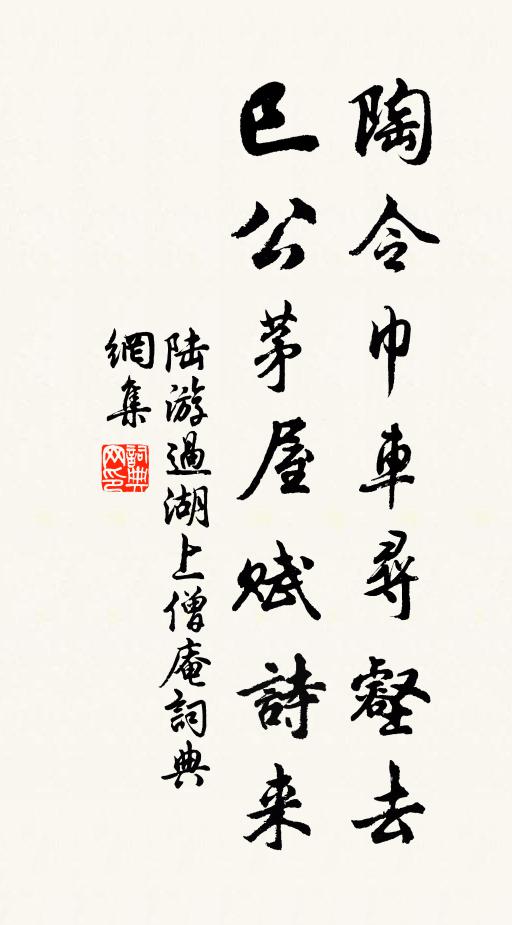 陶令巾車尋壑去
巳公茅屋賦詩来
陸游過湖上僧庵詞典
網集
詞典
网印